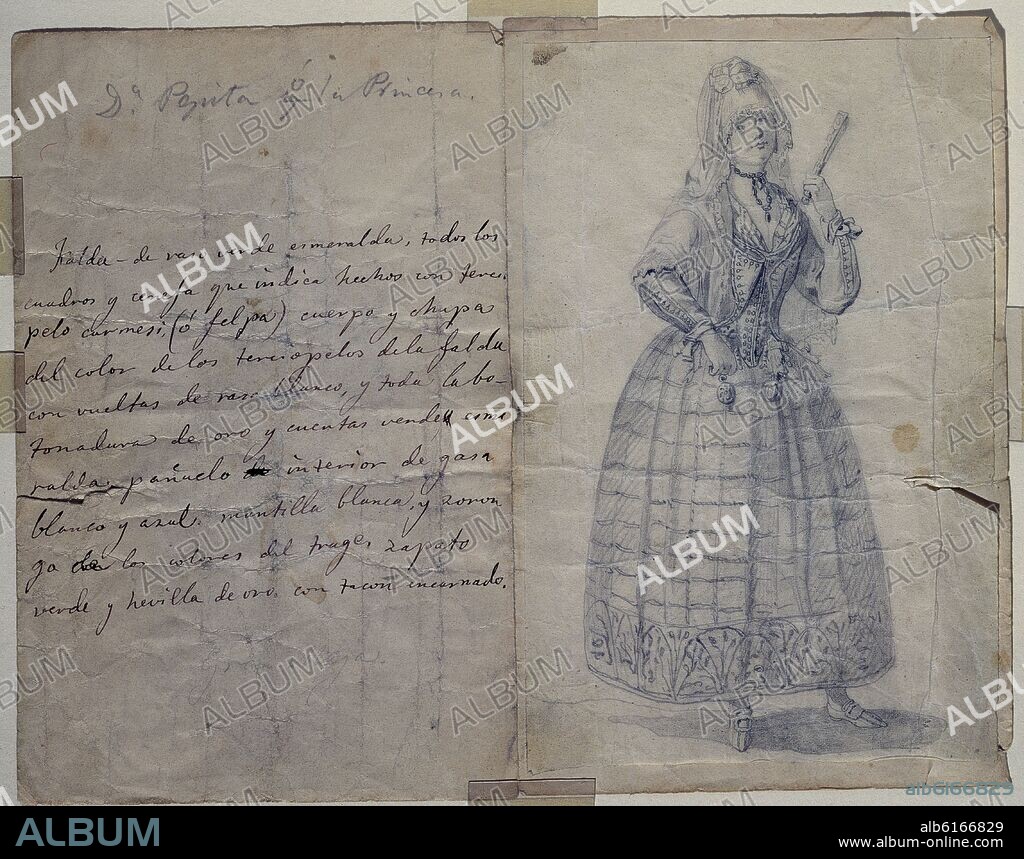 Dª Pepita ó la Princesa.
Falda - de raso verde esmeralda, todos los
cuadros y cenefa que indica hechos con tercio
pelo carmesi, (ó felpa) cuerpo y chupa
del color de los terciopelos de la falda
con vueltas de raso blanco, y toda la bo-
tonadura de oro y cuentas verdes esme
ralda. pañuelo interior de gasa
blanco y azul. mantilla blanca, y zoron
ga de los colores del trage zapato
verde y hevilla de oro con tacon encarnado.
ALBUM
alb6166829
www.album-online.com